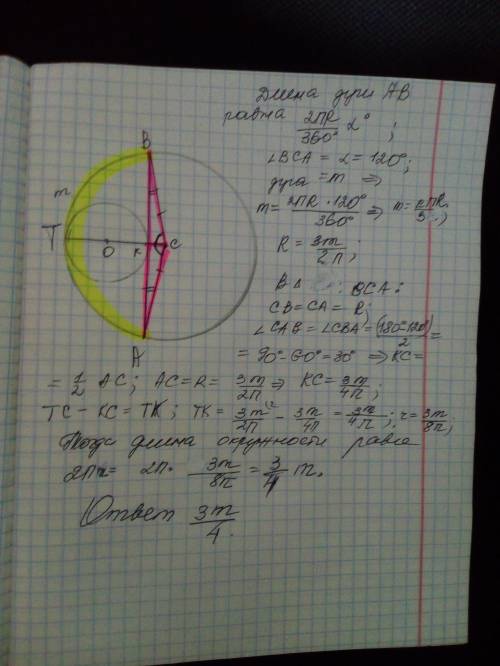 Длина дуги AB
равна 2ПR/360° α° ;
∠BCA = α = 120°;
дуга = m ⇒
m = 2ПR·120°/360° ⇒ m = 2ПR/3 ;
R = 3m/2П ;
В Δ BCA:
CB = CA = R;
∠CAB = ∠CBA = (180°-120°)/2 =
= 90°-60° = 30° ⇒ KC =
= 1/2 AC; AC = R = 3m/2П ⇒ KC = 3m/4П ;
TC - KC = TK ; TK = 3m/2П - 3m/4П = 3m/4П ; r = 3m/8П ;
Тогда длина окружности равна
2Пr = 2П· 3m/8П = 3/4 m.
Ответ 3m/4.
B
m
T
O
K
C
A